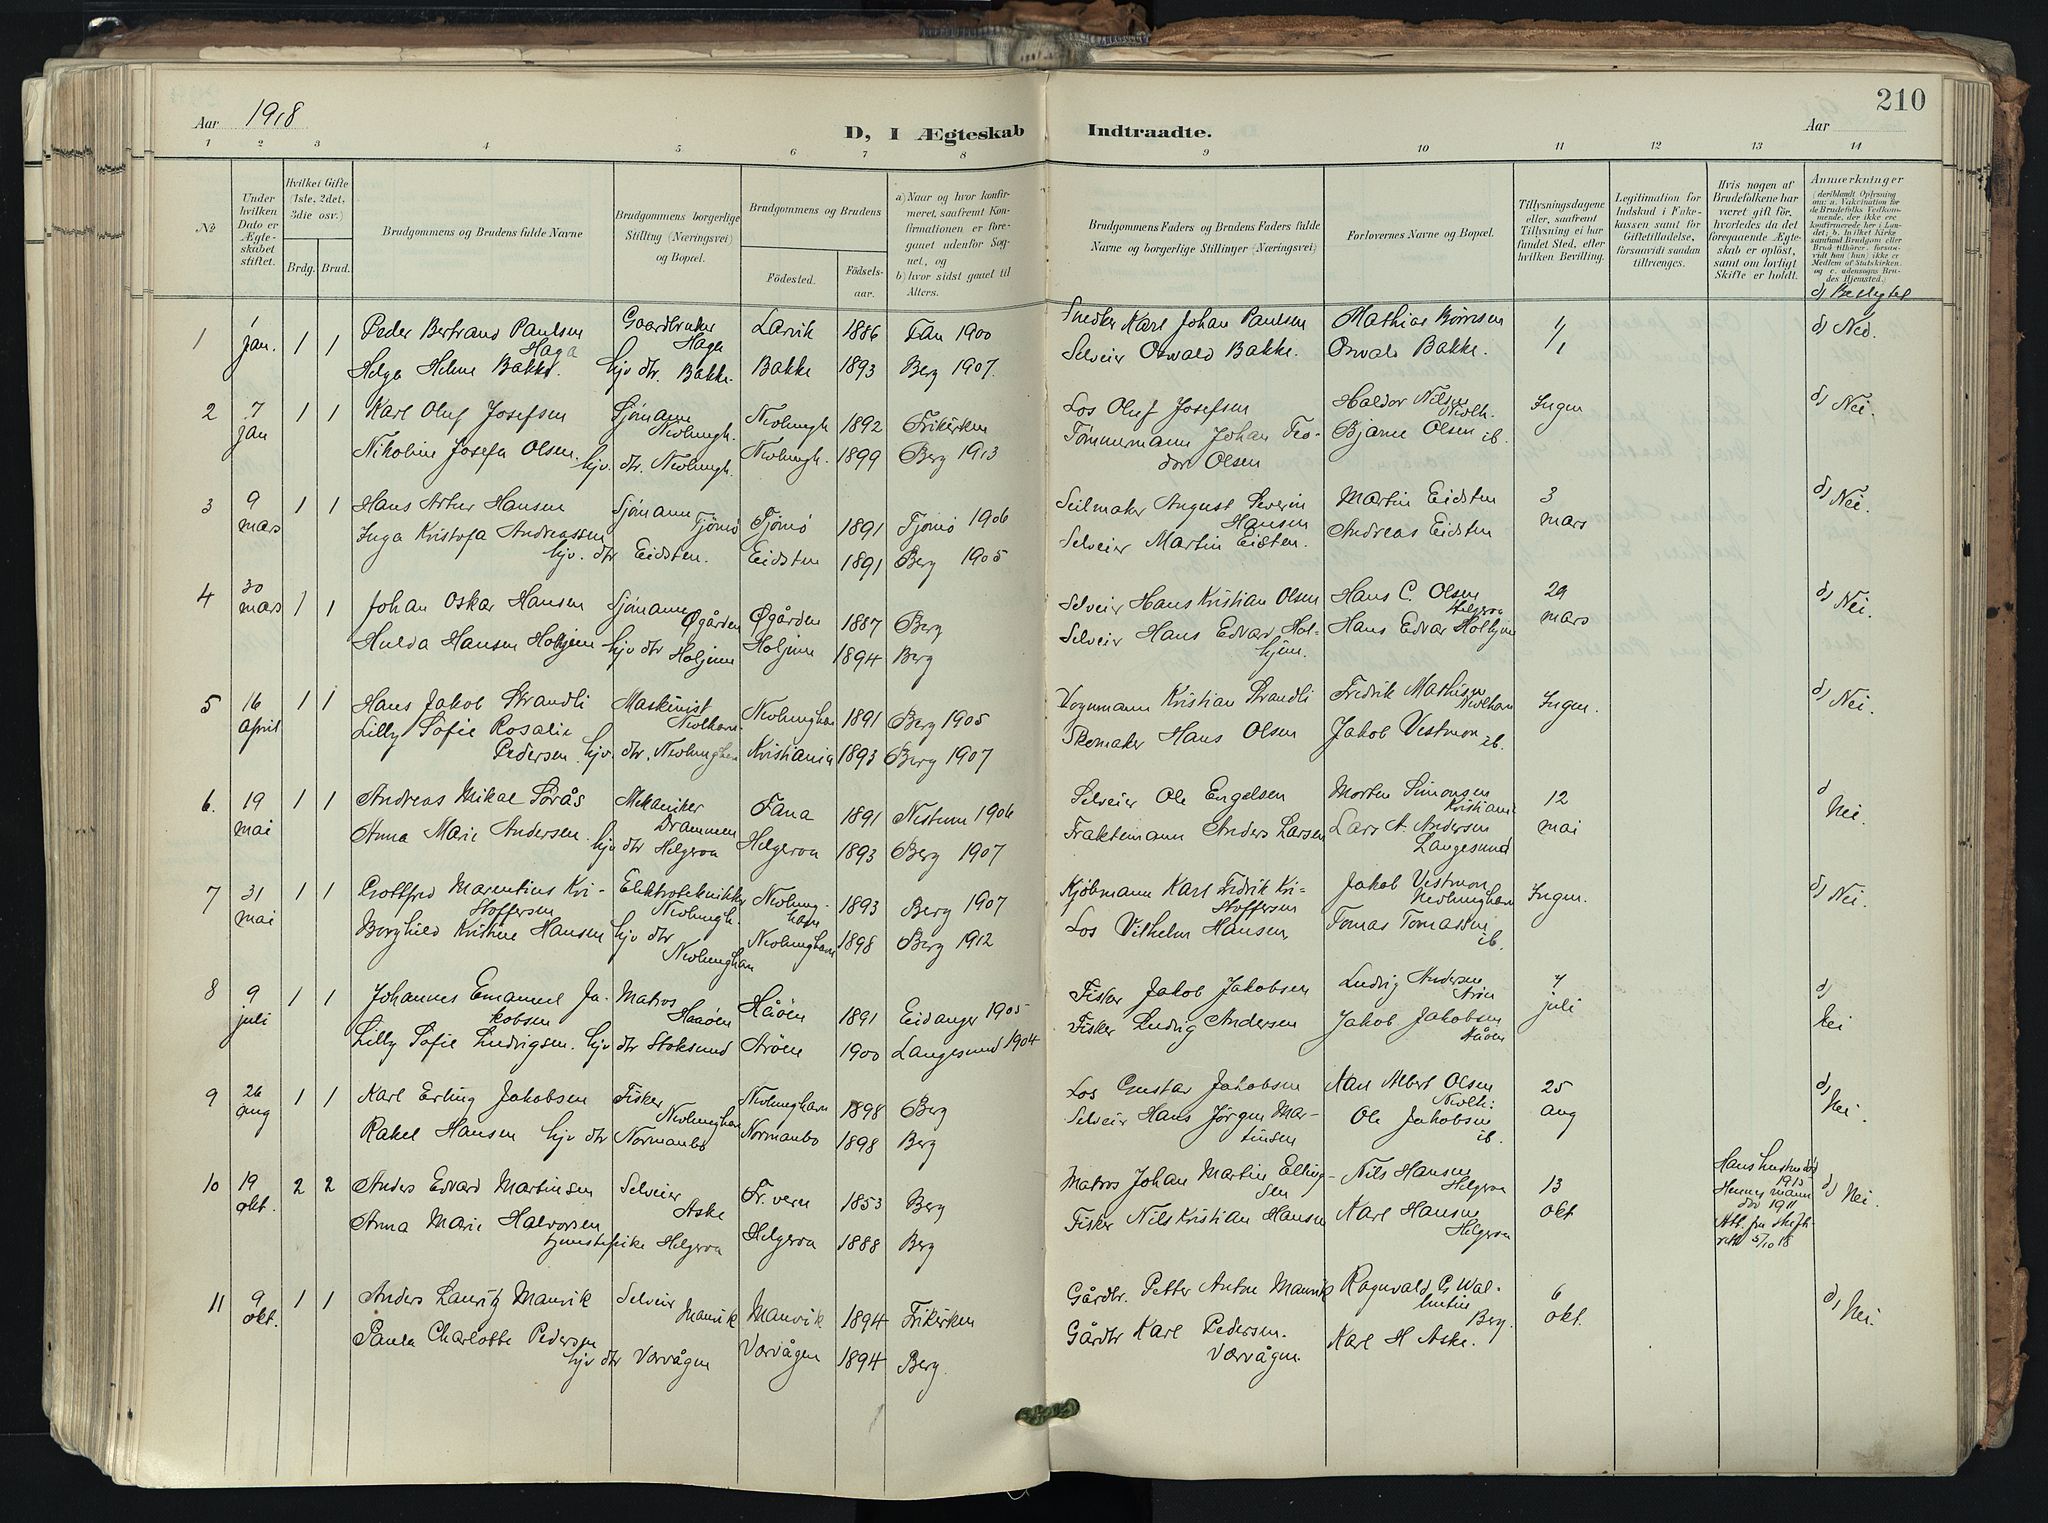 Aar 1918
D, I Ægteskab Indtraadte.
210
Aar
1 2 3 4 5 6 7 8 9 10 11 12 13 14
№
Under hvilken Dato er Ægteskabet stiftet.
Hvilket Gifte (1ste, 2det, 3die osv.)
Brdg. Brud.
Brudgommens og Brudens fulde Navne
Brudgommens borgerlige Stilling (Næringsvei) og Bopæl.
Brudgommens og Brudens
Fødested.
Fødsels-aar.
a) Naar og hvor konfirmeret, saafremt Konfirmationen er foregaaet udenfor Sognet, og
b) hvor sidst gaaet til Alters.
Brudgommens Faders og Brudens Faders fulde Navne og borgerlige Stillinger (Næringsvei)
Forlovernes Navne og Bopæl.
Tillysningsdagene eller, saafremt Tillysning ei har fundet Sted, efter hvilken Bevilling.
Legitimation for Indskud i Enkekassen samt for Giftetilladelse, forsaavidt saadan tiltrænges.
Hvis nogen af Brudefolkene har været gift før, hvorledes da det foregaaende Ægteskab er opløst, samt om lovligt Skifte er holdt.
Anmærkninger
(deriblandt Oplysning om: a. Vakcination for de Brudefolks Vedkommende, der ikke ere konfirmerede her i Landet; b. in hvilket Kirkesamfund Brudgom eller Brud tilhører, forsaavidt han (hun) ikke er Medlem af Statskirken, og c. udensogns Brudes Hjemsted.)
d) Beslegtet
1 1 jan. 1 1 Peder Bertrand Paulsen Haga Gaardbruker Haga Larvik 1886 Tan 1900 Snedker Karl Johan Paulsen Mathias Børresen 1/1 d) Nei.
Helga Helene Bakke. hjv dtr. Bakke. Bakke 1893 Berg 1907. Selveier Osvald Bakke. Osvald Bakke.
2 7 jan 1 1 Karl Oluf Josefsen Sjømann Nevlungh. Nevlungh 1892 Frikirken Los Oluf Josefsen Haldor Nilsen Nevlh. Ingen d) Nei.
Nikoline Josefa Olsen. hjv. dtr. Nevlungh. Nevlungh. 1899 Berg 1913 Tømmermann Johan Teodor Olsen Bjarne Olsen ib.
3 9 mars 1 1 Hans Artur Hansen Sjømann Tjømø Tjømø 1891 Tjømø 1906 Seilmaker August Severin Hansen Martin Eidsten 3 mars d) Nei.
Inga Kristofa Andreassen hjv. dtr Eidsten. Eidsten 1891 Berg 1905 Selveier Martin Eidsten. Andreas Eidsten
4 30 mars 1 1 Johan Oskar Hansen Sjømann Øgården Øgården 1887 Berg Selveier Hans Kristian Olsen Hans C. Olsen Helgeroa 29 mars d) Nei.
Hulda Hansen Holhjem hjv dtr Holjem Holjem 1894 Berg Selveier Hans Edvar Holhjem. Hans Edvar Holhjem
5 16 april 1 1 Hans Jakob Strandli Maskinist Nevlhavn. Nevlunghavn 1891 Berg 1905 Vognmann Kristian Strandli Fredrik Mathisen Nevlhavn Ingen. d) Nei.
Lilly Sofie Rosalie Pedersen. hjv. dtr. Nevlunghavn Kristiania 1893 Berg 1907 Skomaker Hans Olsen Jakob Vestmon ib.
6. 19 mai 1 1 Andreas Mikal Sørås Mekaniker Drammen Fana 1891 Nestun 1906 Selveier Ole Engelsen Morten Simonsen Kristiania 12 mai d Nei.
Anna Marie Andersen. hjv dtr Helgeroa Helgeroa 1893 Berg 1907 Fraktemann Anders Larsen Lars A. Andersen Langesund
7 31 mai 1 1 Gottfred Marentius Kristoffersen Elektrotekniker Nevlungh. Nevlunghavn 1893 Berg 1907 Kjøbmann Karl Fredrik Kristoffersen Jakob Vestmon Nevlunghavn Ingen. d) Nei.
Borghild Kristine Hansen hjv dtr Nevlunghavn Nevlunghavn 1898 Berg 1912 Los Vilhelm Hansen Tomas Tomassen ib.
8 9 juli 1 1 Johannes Emanuel Jakobsen Matros Haaøen Håøen 1891 Eidanger 1905 Fisker Jakob Jakobsen Ludvig Andersen Arøen 7 juli d) Nei
Lilly Sofie Ludvigsen. hjv dtr Stoksund Arøen 1900 Langesund 1904 Fisker Ludvig Andersen Jakob Jakobsen Håøen
9 26 aug 1 1 Karl Erling Jakobsen Fisker Nevlunghavn Nevlunghavn 1898 Berg Los Gustav Jakobsen Karl Albert Olsen Nevlh. 25 aug d) Nei.
Rakel Hansen hjv dtr Normanbo Normanbo 1898 Berg Selveier Hans Jørgen Martinsen Ole Jakobsen ib.
10 19 okt. 2 2 Anders Edvard Martinsen Selveier Aske Fr.vern 1853 Berg Matros Johan Martin Ellingsen Nils Hansen Helgeroa 13 okt Hans hustru død 1915 Hennes mann død 1911 Att. fra skifteretten 5/10 18 d) Nei.
Anna Marie Halvorsen tjenestepike Helgeroa Helgeroa 1888 Berg Fisker Nils Kristian Hansen Karl Hansen Helgeroa
11 9 okt. 1 1 Anders Lauritz Manvik Selveier Manvik Manvik 1894 Frikirken Gårdbr. Petter Anton Manvik Ragnvald G. Walentin Berg. 6 okt. d) Nei.
Paula Charlotte Pedersen hjv dtr Vorvågen Vorvågen 1894 Berg. Gårdbr Karl Pedersen. Vorvågen. Karl H Aske.